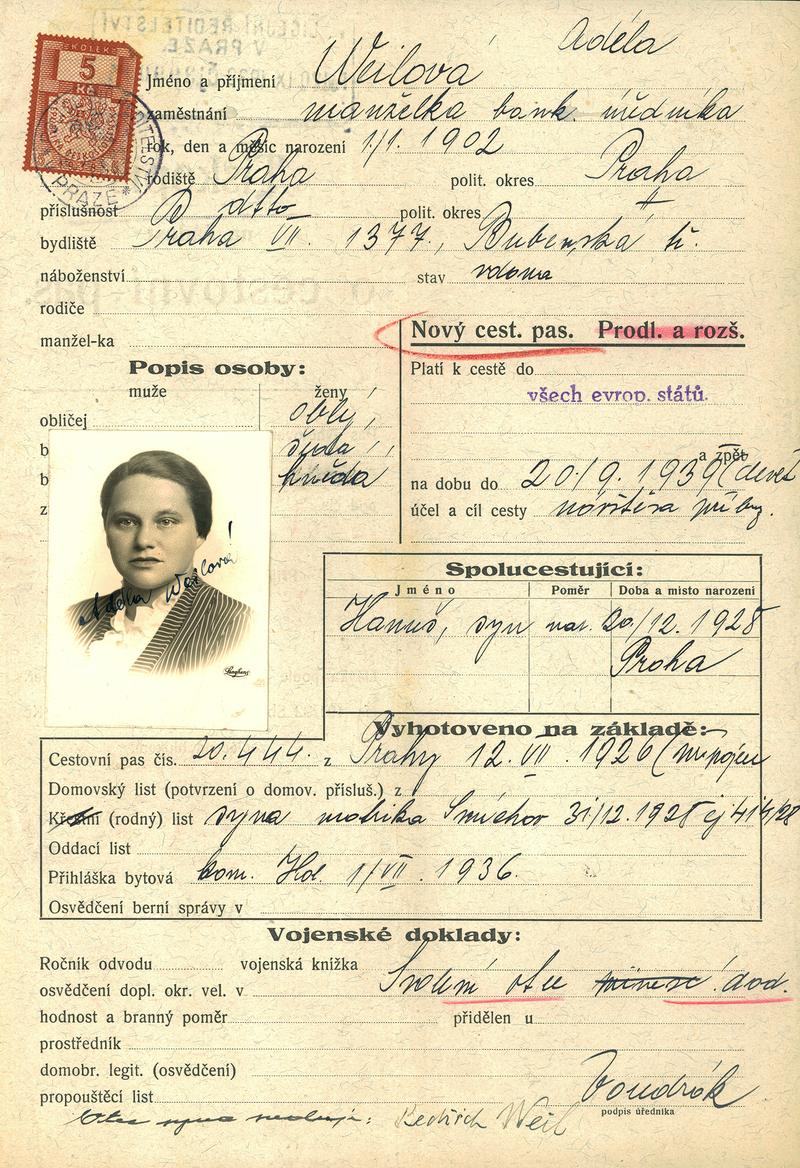 KOLEK
5
Kč
PRAZE *
Jméno a příjmení Weilová Adéla
zaměstnání manželka bank. úředníka
rok, den a měsíc narození 1/1. 1902
rodiště Praha polit. okres Praha
příslušnost dtto polit. okres
bydliště Praha VII. 1377, Bubenská tř.
náboženství stav vdaná
rodiče
manžel-ka
Nový cest. pas. Prodl. a rozš.
Popis osoby:
muže ženy
Platí k cestě do
všech evrop. států.
obličej oblý
b šedá
b hnědá
z
a zpět
na dobu do 20/9. 1939
účel a cíl cesty návštěva příbuz.
Adéla Weilová
Langhans
Spolucestující:
Jméno Poměr Doba a místo narození
Hanuš, syn nar. 20/12. 1928
Praha
Vyhotoveno na základě:
Cestovní pas čís. 20.444. z Prahy 12. VII. 1926
Domovský list (potvrzení o domov. přísluš.) z
Křestní (rodný) list syna matrika Smíchov 31/12. 1928 čj 414/28
Oddací list
Přihláška bytová kom. Hol. 1/VII. 1936.
Osvědčení berní správy v
Vojenské doklady:
Ročník odvodu vojenská knížka
osvědčení dopl. okr. vel. v Svolení otce dod.
hodnost a branný poměr přidělen u
prostředník
domobr. legit. (osvědčení)
propouštěcí list Voudrák
podpis úředníka
Otec syna Bedřich Weil